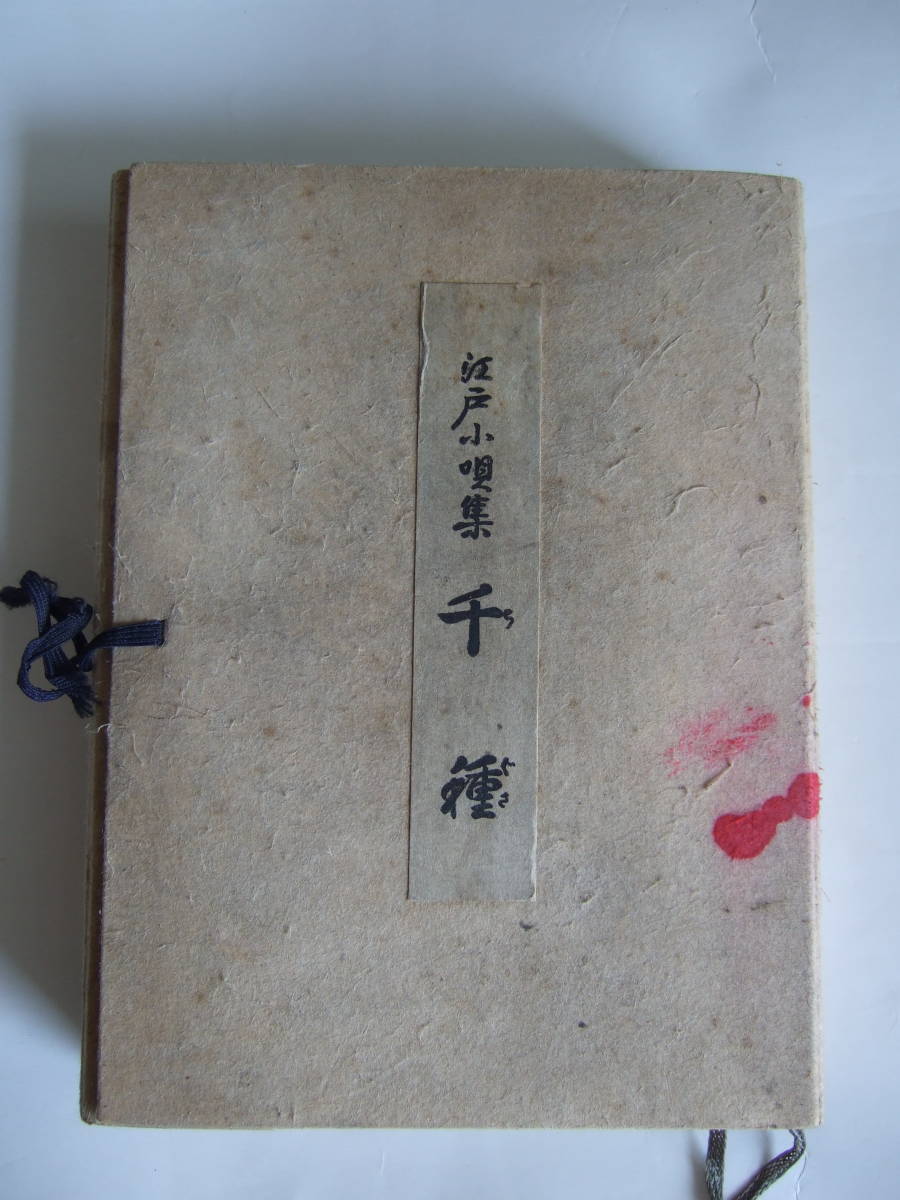 江戸小唄集 千種
ち
ぐさ